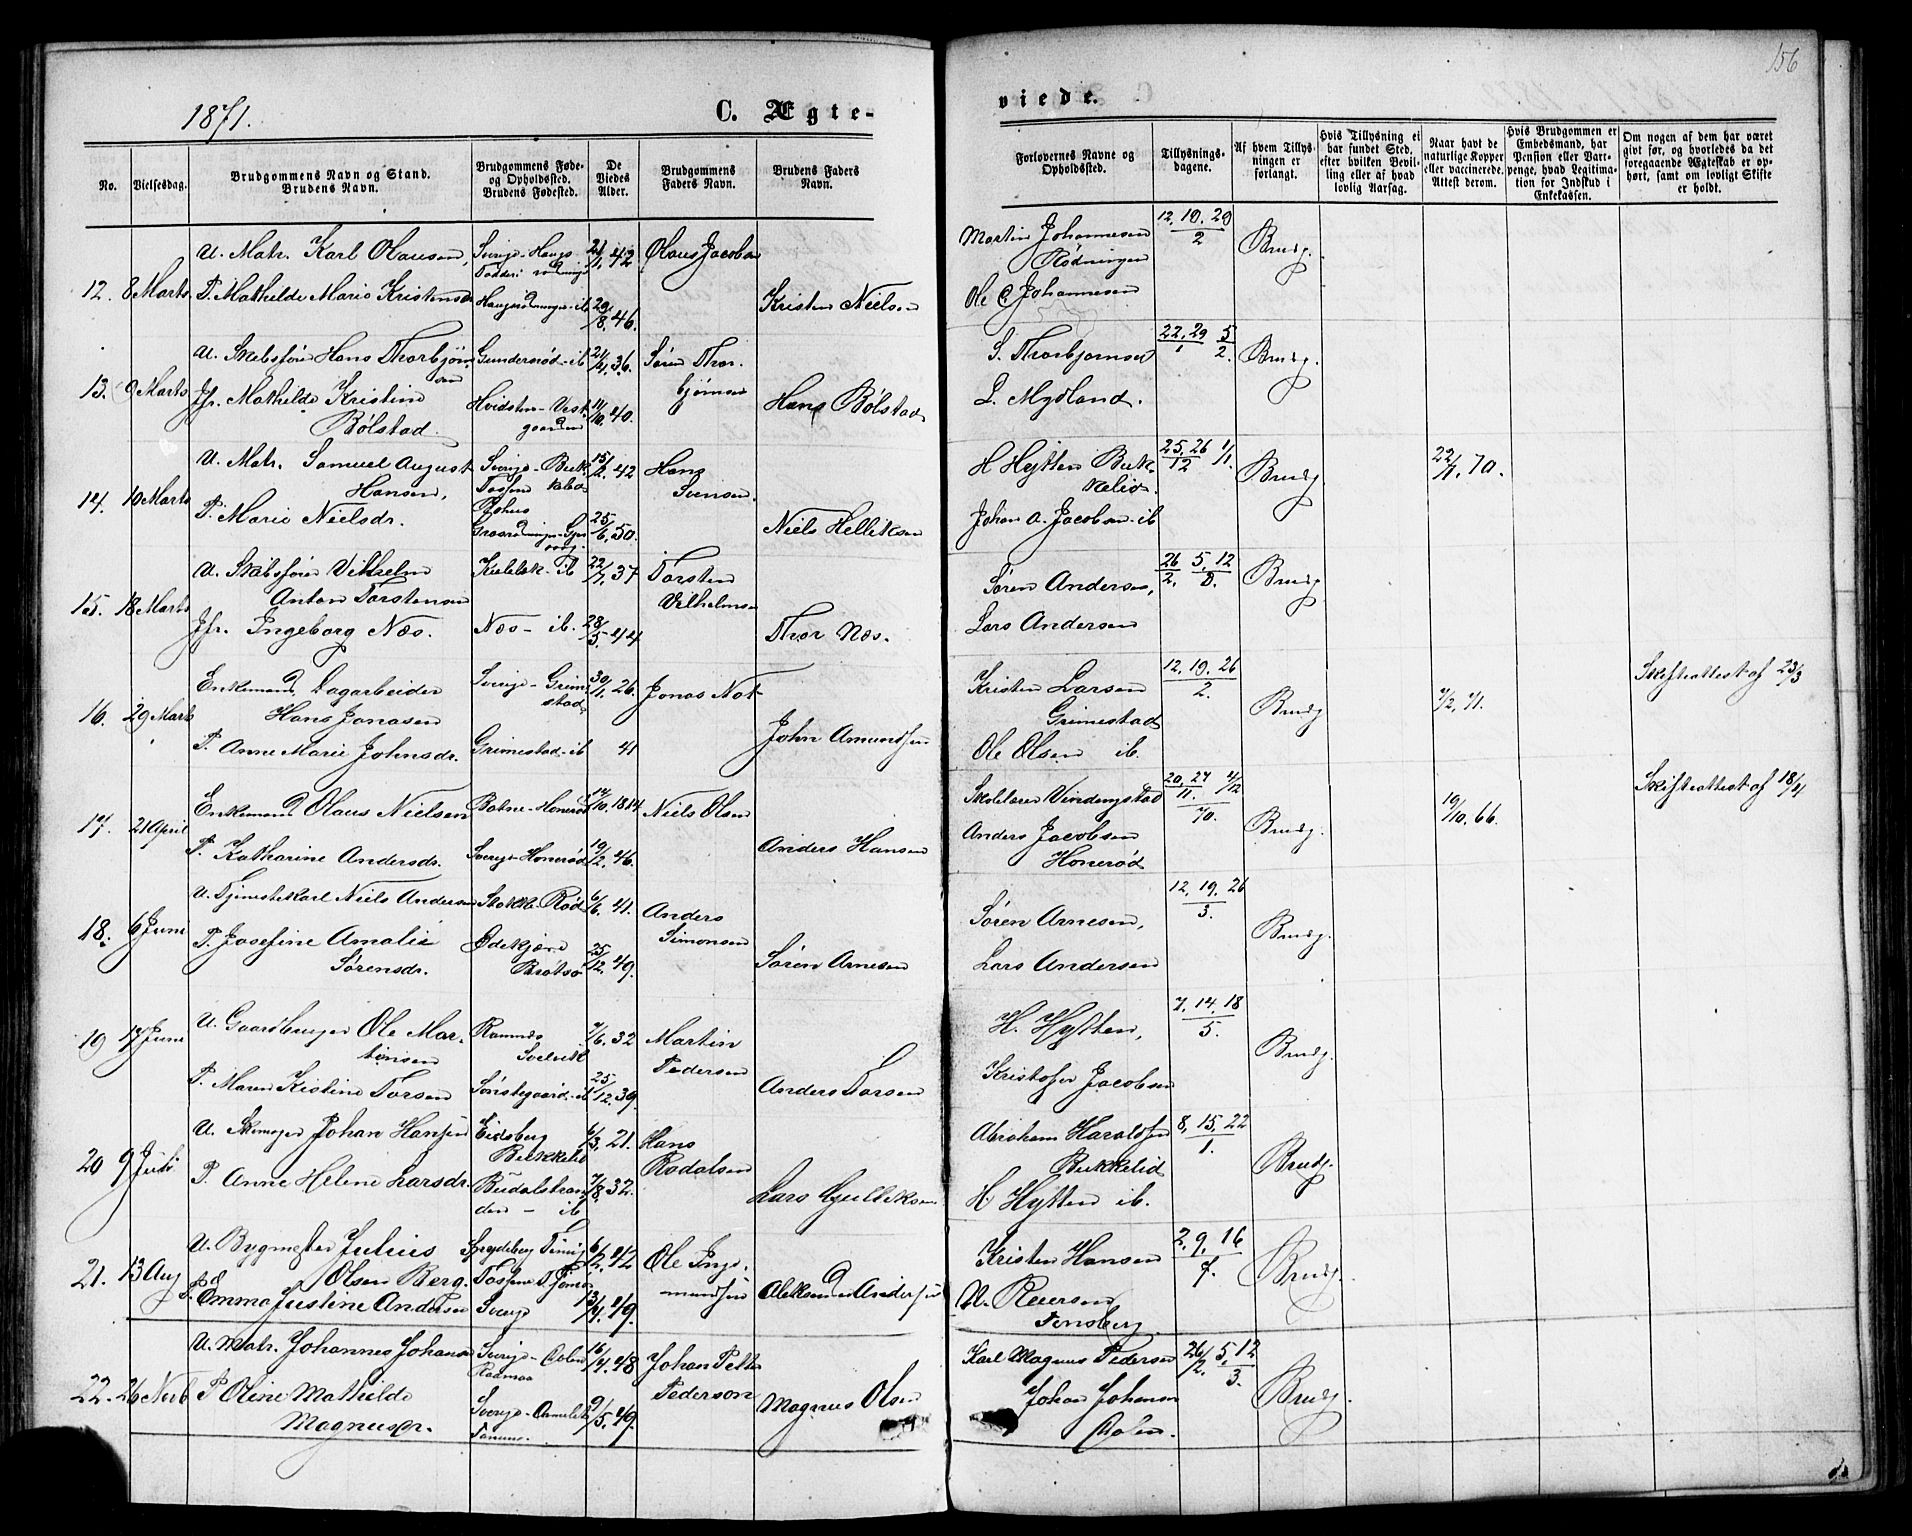 156
1871.
C. Ægte-
viede.
No.
Vielsesdag.
Brudgommens Navn og Stand.
Brudens Navn.
Brudgommens Føde-
og Opholdssted.
Brudens Fødested.
De
Viedes
Alder.
Brudgommens
Faders Navn.
Brudens Faders
Navn.
Forlovernes Navne og
Opholdssted.
Tillysnings-
dagene.
Af hvem Tillys-
ningen er
forlangt.
Hvis Tillysning ei
har fundet Sted,
efter hvilken Bevil-
ling eller af hvad
lovlig Aarsag.
Naar havt de
naturlige Kopper
eller vaccinerede.
Attest derom.
Hvis Brudgommen er
Embedsmand, har
Pension eller Vart-
penge, hvad Legitima-
tion for Indskud i
Enkekassen.
Om nogen af dem har været
gift før, og hvorledes da det
foregaaende Ægteskab er op-
hørt, samt om lovligt Skifte
er holdt.
12. 8 Marts
U. Matr. Karl Olausen,
P. Mathilde Marie Kristensdr
21/1, 42
29/8. 46.
Olaus Jacobsen
Kristen Nielsen
Martin Johannesen
Rødningen
Ole C Johannesen
12, 19. 29
2
Brudg.
13. 9 Marts
U. Skibsfører Hans Thorbjørn-
sen
Jfr. Mathilde Kristine
Bølstad.
Gunderrød - ib
Hvidsten - Vest-
gaarden
21/4, 36.
11/10, 40.
Søren Thor-
bjørnsen
Hans Bølstad
S. Thorbjørnsen
L. Mydland.
22, 29 5
1 2.
Brudg.
14. 10 Marts
U. Matr. Samuel August
Hansen,
P. Marie Nielsdr.
15/2, 42
25/6, 50.
Hans
Svensen.
Niels Helliksen
H Hytten Buk-
kelid.
Johan A. Jacobsen ib
25, 26 1/1
12
Brudg
22/1, 70.
15. 18 Marts
U. Skibsfører Vilhelm
Anton Torstensen
Jfr. Ingeborg Næs.
Næs - ib.
22/7, 37
28/5. 44
Torsten
Vilhelmsen
Thor Næs.
Søren Andersen,
Lars Andersen
26 5, 12
2.
Brudg
16. 29 Marts
Enkemand Dagarbeider
Hans Jonasen
P. Anne Marie Johnsdr.
Sverige - Grime-
stad.
Grimestad - ib
30/1, 26.
41
Jonas Not
John Amundsen
Kristen Larsen
Grimestad
Ole Olsen ib.
12, 19. 26
2.
Brudg
7/2, 71.
Skifteattest af 23/3
17. 21 April
Enkemand Olaus Nielsen
P. Katharine Andersdr.
Botne - Honerød
Sverige - Honerød
14/10. 1814.
19/2, 46.
Niels Olsen
Anders Hansen
Skolelærer Vindengstad
Anders Jacobsen
Honerød
20, 27 4/12
11.
70.
Brudg.
19/10. 66.
Skifteattest af 18/4
18. 6 Juni
U. Tjenestekarl Niels Andersen
P. Josefine Amalie
Sørensdr.
Stokke - Rød
Ødekjære
Brøtsø
6/6, 41.
25/12, 49.
Anders
Simonsen
Søren Arnesen
Søren Arnesen,
Lars Andersen
12, 19. 26
3.
Brudg.
19 17 Juni
U. Gaardbruger Ole Mar-
tinsen
P. Maren Kistine Torsen
Ramnes
Svelvik
Sønstegaard - ib
7/6, 32
25/12. 39.
Martin
Pedersen
Anders Torsen
H. Hytten,
Kristofer Jacobsen
7, 14, 18
5.
Brudg.
20 9 Juli
U. Skomager Johan Hansen
P. Anne Helene Larsdr.
Eidsberg
Bukkelid
Budalstran-
den - ib
6/3, 21.
7/8, 32.
Hans
Lars Gulliksen
Abraham Haraldsen
Bukkelid
H Hytten ib.
8, 15, 22
1.
Brudg.
21. 13 Aug
U. Bygmester Julius
Olsen Berg.
P. Emma Justine Andersen
Sverige
6/2, 42
13/1. 49.
Ole Inge-
mundsen
Aleksander Andersen
Kristen Hansen
Reiersen
Tønsberg.
2, 9, 16
7.
Brudg.
22. 26 Novb
U. Matr. Johannes Johansen
P Oline Mathilde
Magnusdr.
16/4. 48
9/5. 49.
Johan Petter
Pederson
Magnus Olsen
Karl Magnus Pedersen
Johan Johansen
26/2. 5, 12
3.
Brudg